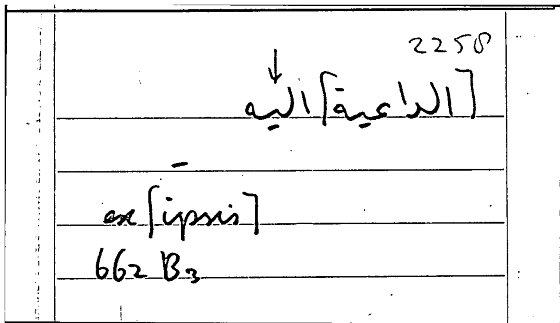 2258
[الداعية] اليه
–
ex [ipsis]
662 B3